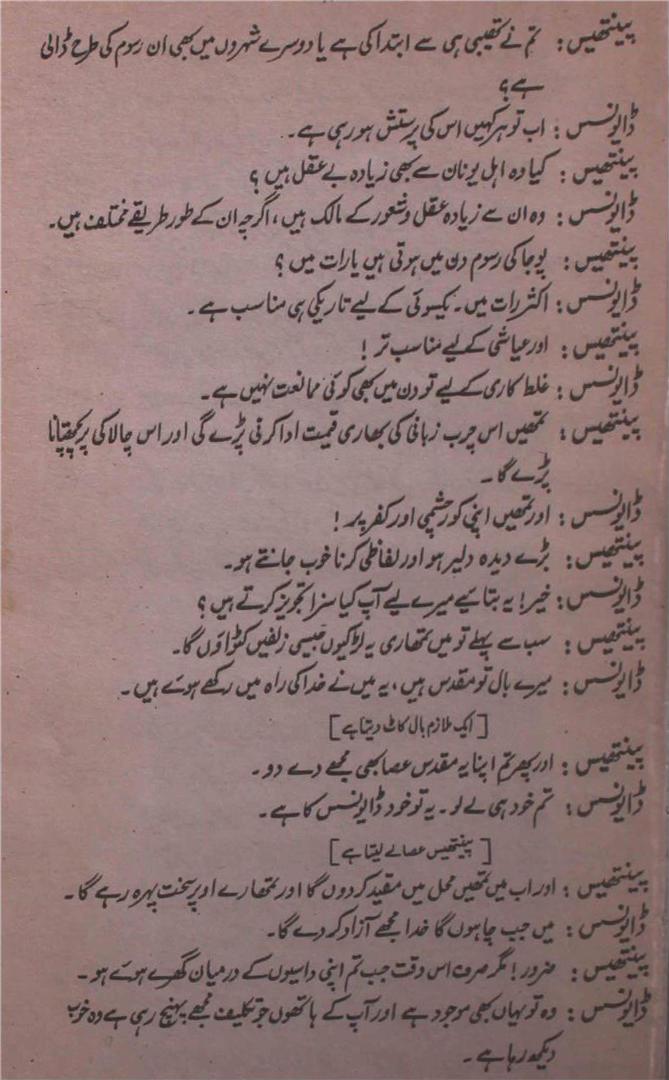 پینتھیس : تم نے تھیبی ہی سے ابتدا کی ہے یا دوسرے شہروں میں بھی ان رسوم کی طرح ڈالی
ہے؟
ڈایونسس : اب تو ہر کہیں اس کی پرستش ہو رہی ہے۔
پینتھیس : کیا وہ اہل یونان سے بھی زیادہ بے عقل ہیں ؟
ڈایونسس : وہ ان سے زیادہ عقل و شعور کے مالک ہیں، اگرچہ ان کے طور طریقے مختلف ہیں۔
پینتھیس : پوجا کی رسوم دن میں ہوتی ہیں یا رات میں ؟
ڈایونسس : اکثر رات میں۔ یکسوئی کے لیے تاریکی ہی مناسب ہے۔
پینتھیس : اور عیاشی کے لیے مناسب تر !
ڈایونسس : غلط کاری کے لیے تو دن میں بھی کوئی ممانعت نہیں ہے۔
پینتھیس : تمھیں اس چرب زبانی کی بھاری قیمت ادا کرنی پڑے گی اور اس چالاکی پر پچھتانا
پڑے گا۔
ڈایونسس : اور تمھیں اپنی کور چشمی اور کفر پر !
پینتھیس : بڑے دیدہ دلیر ہو اور لفاظی کرنا خوب جانتے ہو۔
ڈایونسس : خیر! یہ بتائیے میرے لیے آپ کیا سزا تجویز کرتے ہیں ؟
پینتھیس : سب سے پہلے تو میں تمھاری یہ لڑکیوں جیسی زلفیں کٹواؤں گا۔
ڈایونسس : میرے بال تو مقدس ہیں، یہ میں نے خدا کی راہ میں رکھے ہوئے ہیں۔
[ ایک ملازم بال کاٹ دیتا ہے ]
پینتھیس : اور پھر تم اپنا یہ مقدس عصا بھی مجھے دے دو۔
ڈایونسس : تم خود ہی لے لو۔ یہ تو خود ڈایونسس کا ہے۔
[ پینتھیس عصا لے لیتا ہے ]
پینتھیس : اور اب میں تمھیں محل میں مقید کر دوں گا اور تمھارے اوپر سخت پہرہ رہے گا۔
ڈایونسس : میں جب چاہوں گا خدا مجھے آزاد کر دے گا۔
پینتھیس : ضرور! مگر صرف اس وقت جب تم اپنی داسیوں کے درمیان گھرے ہوئے ہو۔
ڈایونسس : وہ تو یہاں بھی موجود ہے اور آپ کے ہاتھوں جو تکلیف مجھے پہنچ رہی ہے وہ خوب
دیکھ رہا ہے۔